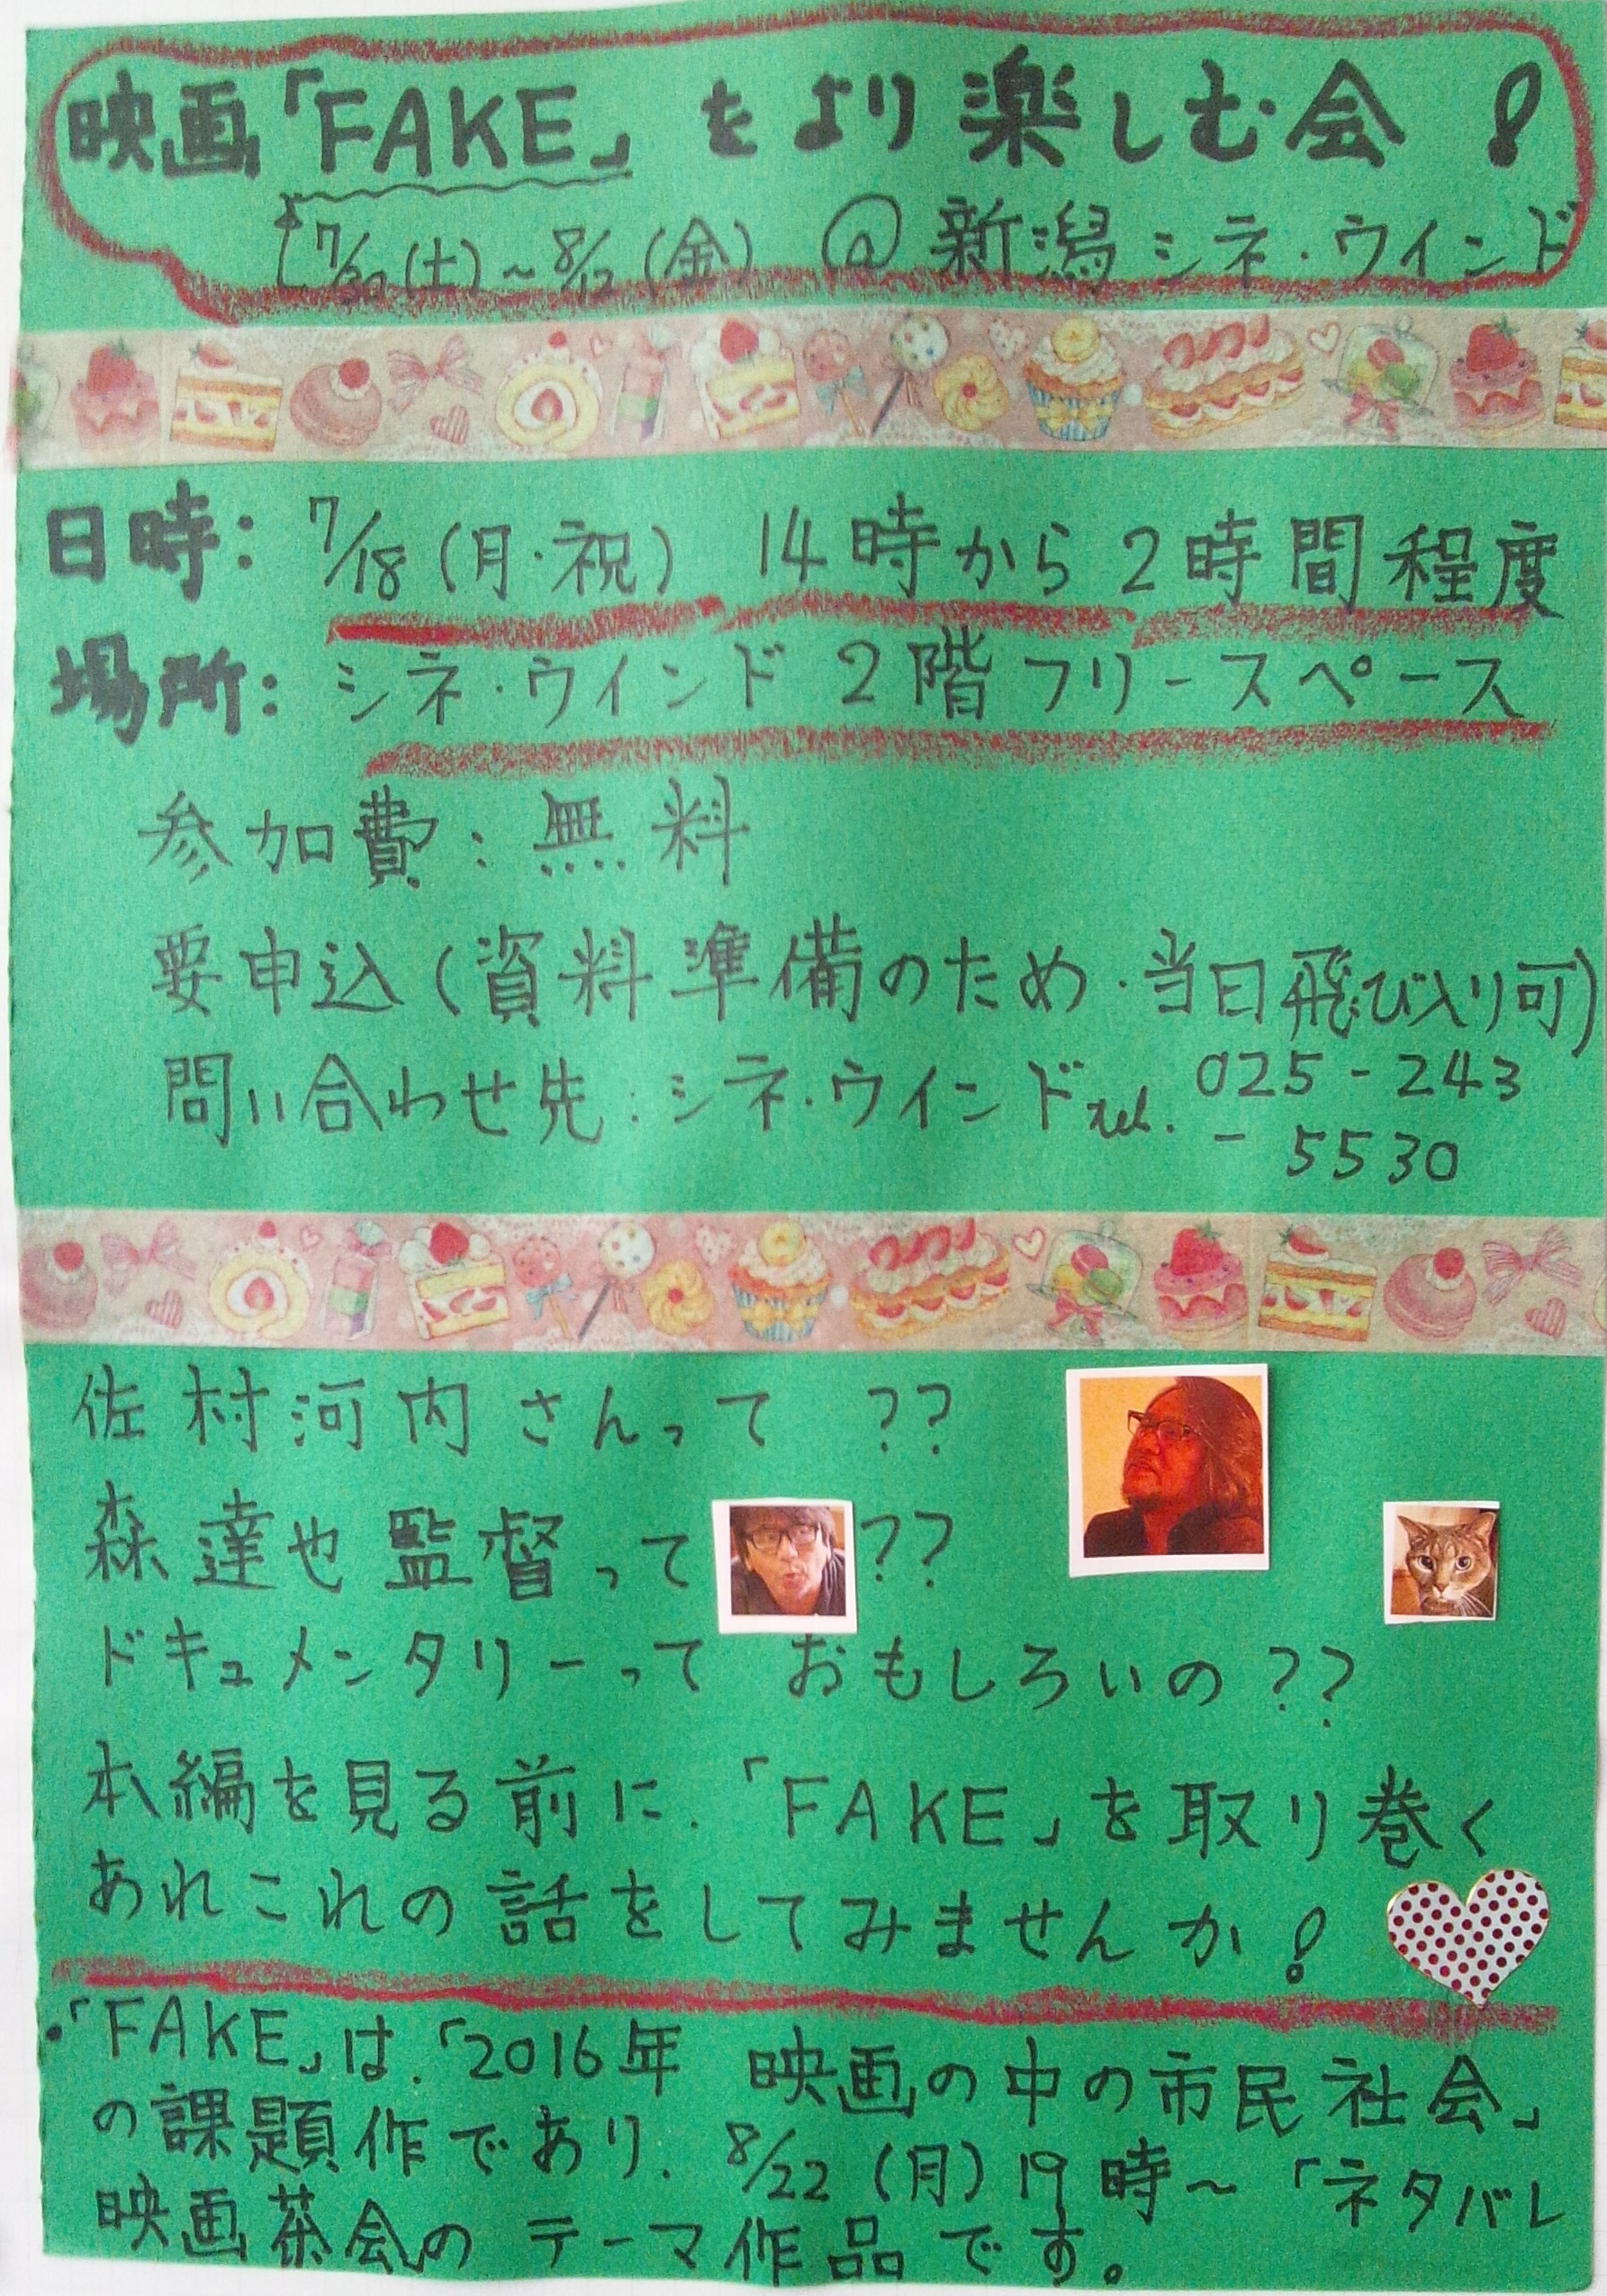 映画「FAKE」をより楽しむ会!
7/30(土)~8/12(金) @新潟シネ・ウインド
日時: 7/18(月・祝) 14時から2時間程度
場所: シネ・ウインド 2階フリースペース
参加費: 無料
要申込(資料準備のため・当日飛び入り可)
問い合わせ先: シネ・ウインド tel. 025-243
-5530
佐村河内さんって ??
森達也監督って ??
ドキュメンタリーって おもしろいの??
本編を見る前に、「FAKE」を取り巻く
あれこれの話をしてみませんか!
・「FAKE」は、「2016年 映画の中の市民社会」
の課題作であり、8/22(月)19時~「ネタバレ
映画茶会のテーマ作品です。